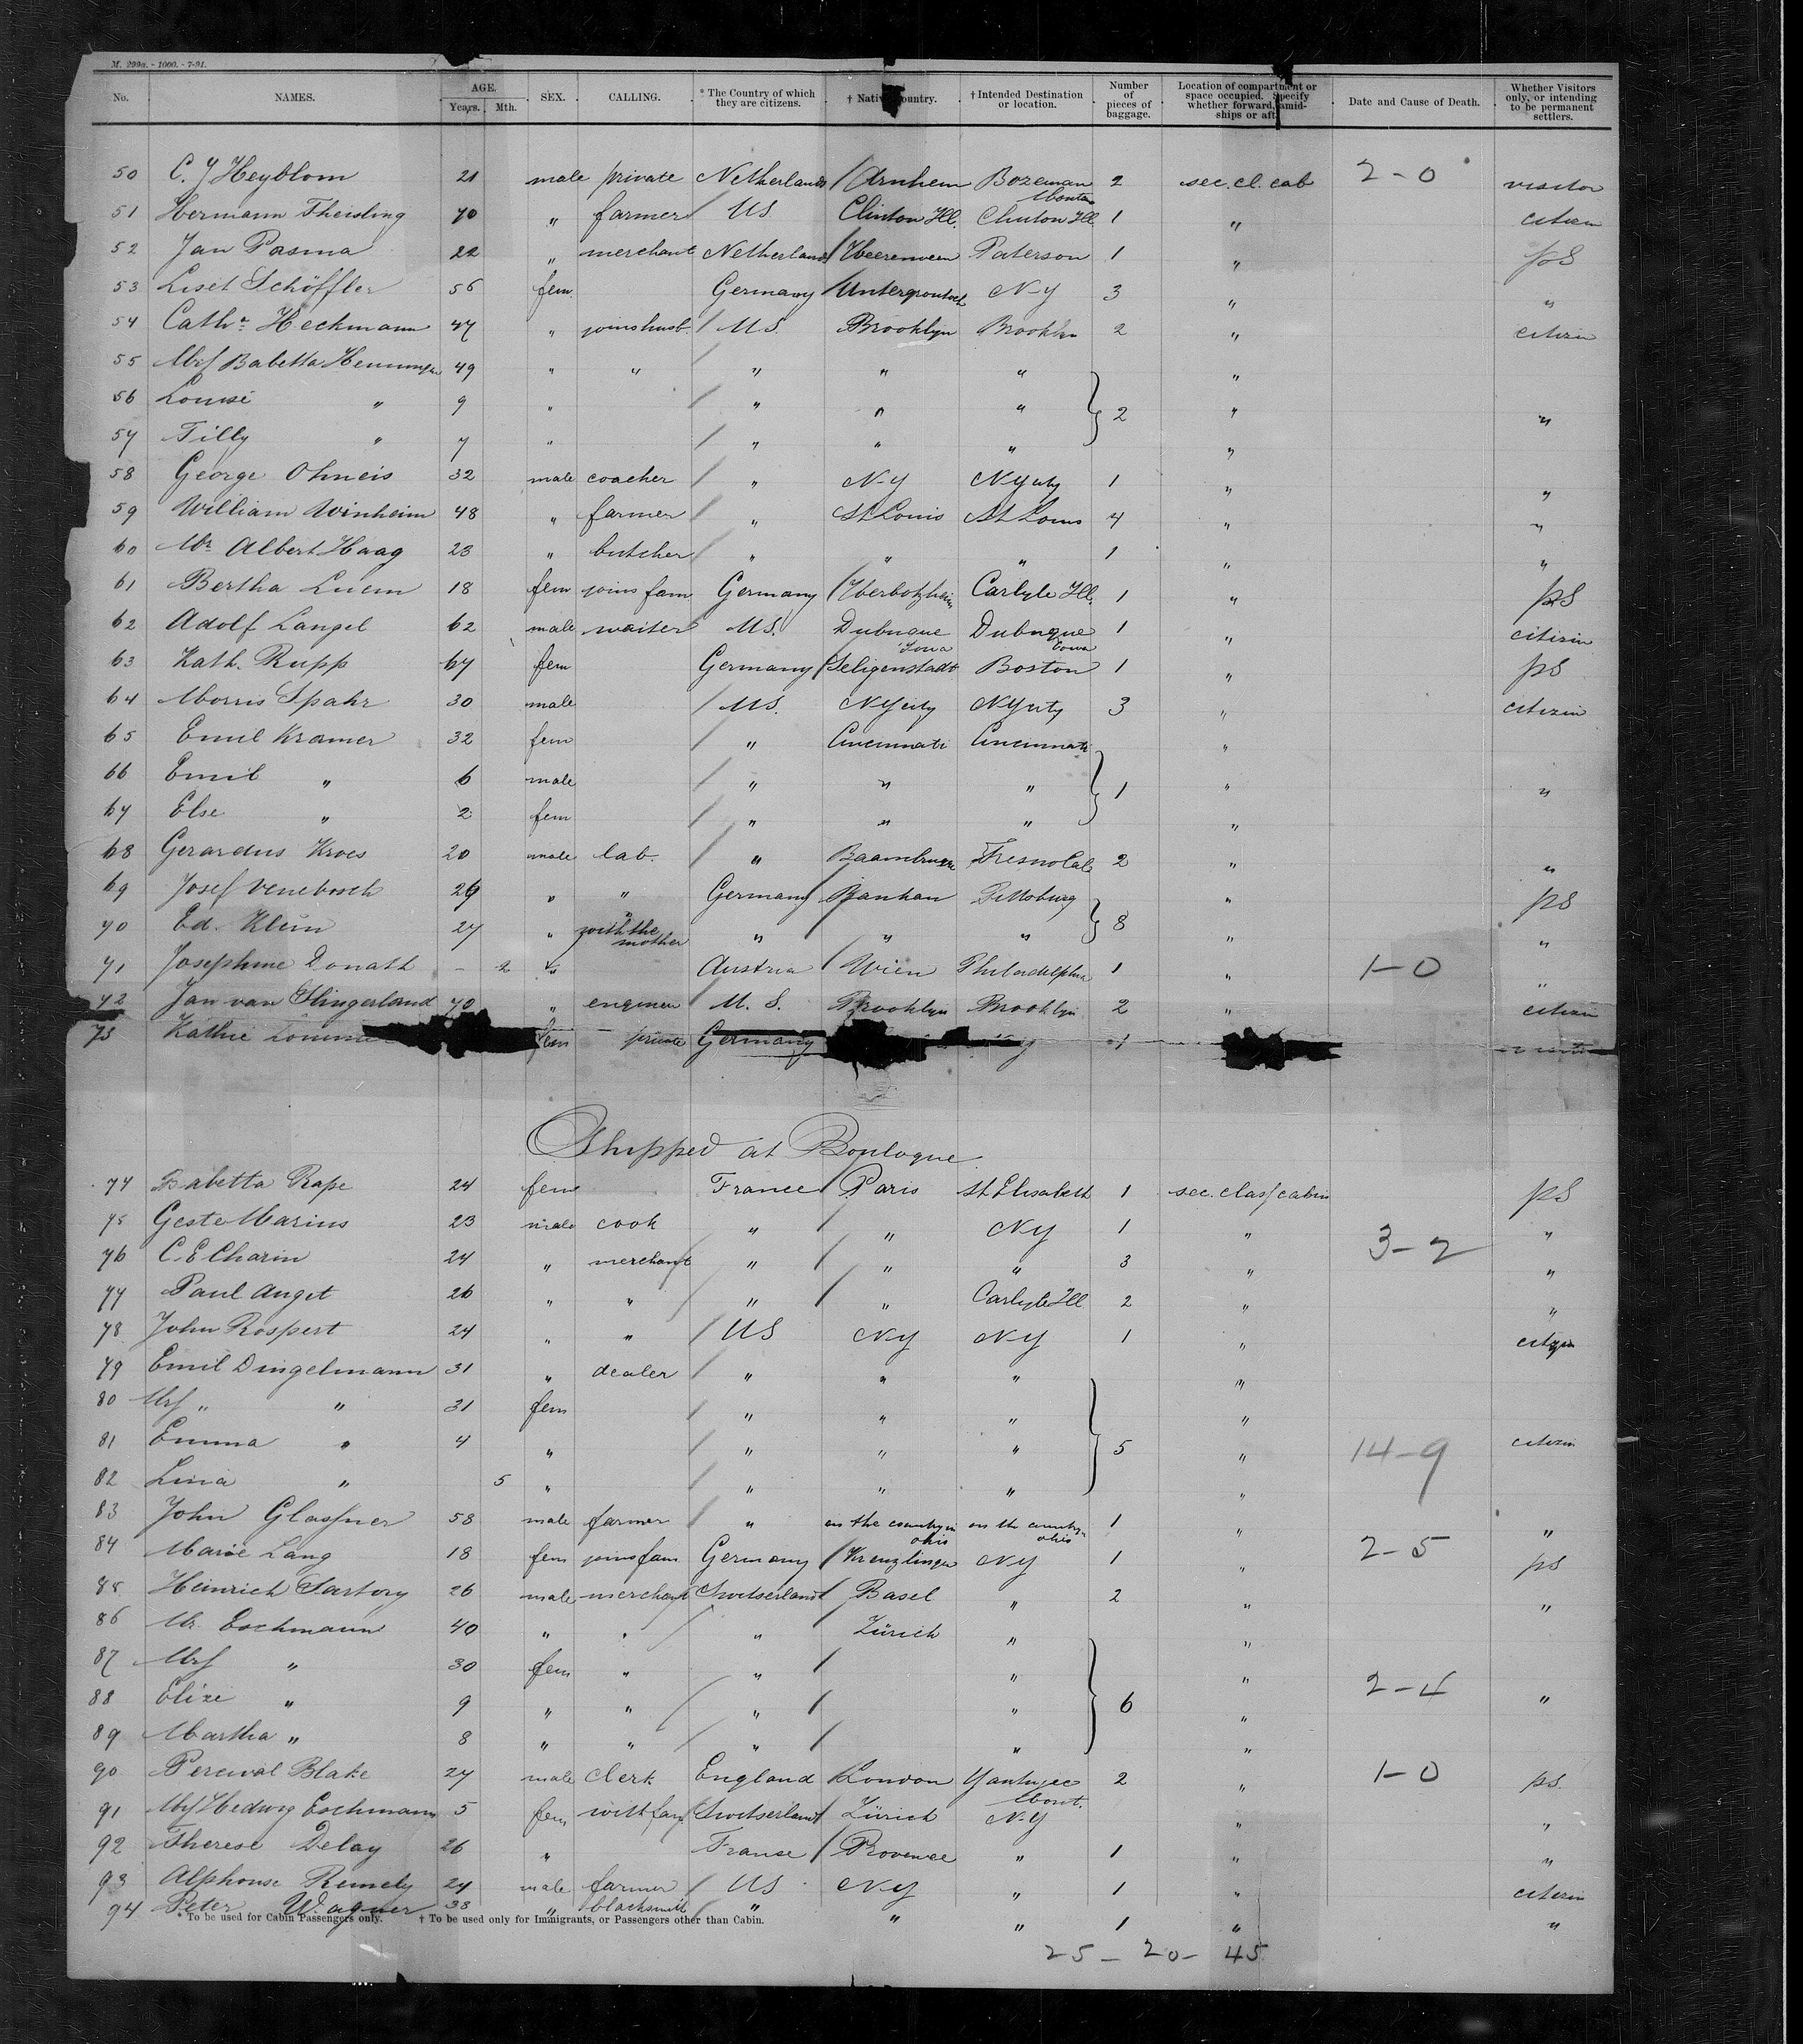 M. 299a. - 1000. - 7-91.
No. NAMES. AGE. Years. Mth. SEX. CALLING. * The Country of which they are citizens. † Native Country. † Intended Destination or location. Number of pieces of baggage. Location of compartment or space occupied. Specify whether forward, amidships or aft. Date and Cause of Death. Whether Visitors only, or intending to be permanent settlers.
50 C. J Heyblom 21 male private Netherlands Arnhem Bozeman Montan 2 sec. cl. cab 2-0 visitor
51 Hermann Theisling 70 " farmer US Clinton Ill. Clinton Ill 1 " citizen
52 Jan Pasma 22 " merchant Netherlands Heerenveen Paterson 1 " pS
53 Liset Schöffler 56 fem Germany N-Y 3 " "
54 Cathr. Heckmann 47 " joins husb. U.S. Brooklyn Brooklyn 2 " citizen
55 Mrs Babetta 49 " " " " " "
56 Louise " 9 " " " " 2 " "
57 Tilly " 7 " " " " "
58 George Ohneis 32 male coacher " N-Y N Y city 1 " "
59 William Winheim 48 " farmer " St Louis St Louis 4 " "
60 Mr Albert Haag 23 " butcher " " " 1 " "
61 Bertha Luem 18 fem joins fam. Germany Carlyle Ill. 1 " pS
62 Adolf Langel 62 male waiter U.S. Dubuque Iowa Dubuque Iowa 1 " citizin
63 Kath. Rupp 67 fem Germany Seligenstadt Boston 1 " pS
64 Morris Spahr 30 male U.S. N Y city N Y city 3 " citizin
65 Emil Kramer 32 fem " Cincinnati Cincinnati "
66 Emil " 6 male " " " 1 " "
67 Else " 2 fem " " " "
68 Gerardus Kroes 20 male lab. " Baambrugge Fresno Cal 2 " "
69 Josef Venebosch 29 " " Germany Pittsburg " pS
70 Ed. Klein 27 " " " " " 8 " "
71 Josephine Donath - 2 " with the mother Austria Wien Philadelphia 1 " 1-0 "
72 Jan van Slingerland 70 " engineer U. S. Brooklyn Brooklyn 2 " citizin
73 Kathie fem private Germany 1
Shipped at Boulogne
74 Babetta Rape 24 fem France Paris St Elisabeth 1 sec. class cabin pS
75 Geste Marius 23 male cook " " N Y 1 " "
76 C. E Charin 24 " merchant " " " 3 " 3-2 "
77 Paul Auget 26 " " " " Carlyle Ill 2 " "
78 John Rospert 24 " " US N Y N Y 1 " citizin
79 Emil Dingelmann 31 " dealer " " " "
80 Mrs " " 31 fem " " " "
81 Emma " 4 " " " " 5 " 14-9 citizin
82 Lina " 5 " " " " "
83 John Glassner 58 male farmer " on the country in ohio on the country in ohio 1 " "
84 Marie Lang 18 fem joins fam Germany Kreuzlingen N Y 1 " 2-5 pS
85 Heinrich Sartory 26 male merchant Switserland Basel " 2 " "
86 Mr. Eschmann 40 " " " Zürich " "
87 Mrs " 30 fem " " " "
88 Elise " 9 " " " " 6 " 2-4 "
89 Martha " 8 " " " " "
90 Percival Blake 27 male clerk England London Mont. 2 " 1-0 pS.
91 Mrs Hedwig Eschmann 5 fem with fam. Switserland Zürich N-Y " "
92 Therese Delay 26 " Franse Provence " 1 " "
93 Alphonse Remely 24 male farmer US N Y " 1 " citizin
94 Peter Wagner 38 " blacksmith " " " 1 " "
* To be used for Cabin Passengers only. † To be used only for Immigrants, or Passengers other than Cabin.
25 - 20 - 45